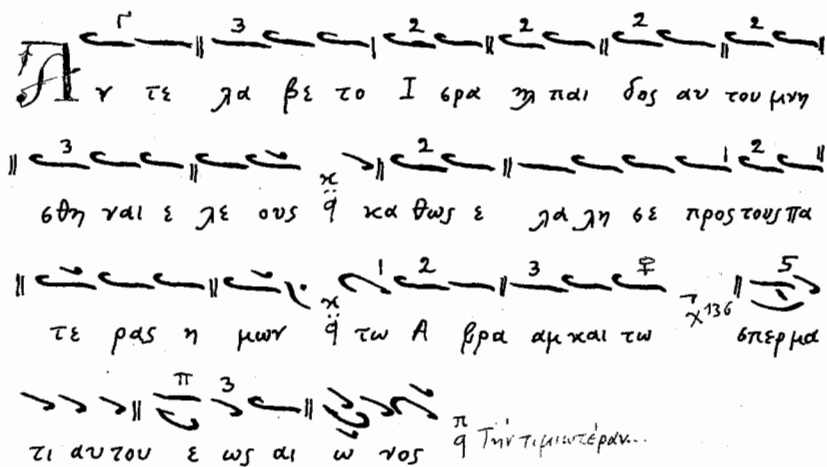 Γ 3 2 2 2 2
Α ν τε λα βε το Ι σρα ηλ παι δος αυ του μνη
3 2 2
σθη ναι ε λε ους κα θως ε λα λη σε προς τους πα
2 3 5
τε ρας η μων τω Α βρα αμ και τω χ136 σπερ μα
π 3
τι αυ του ε ως αι ω νος Τήν τιμιωτέραν...